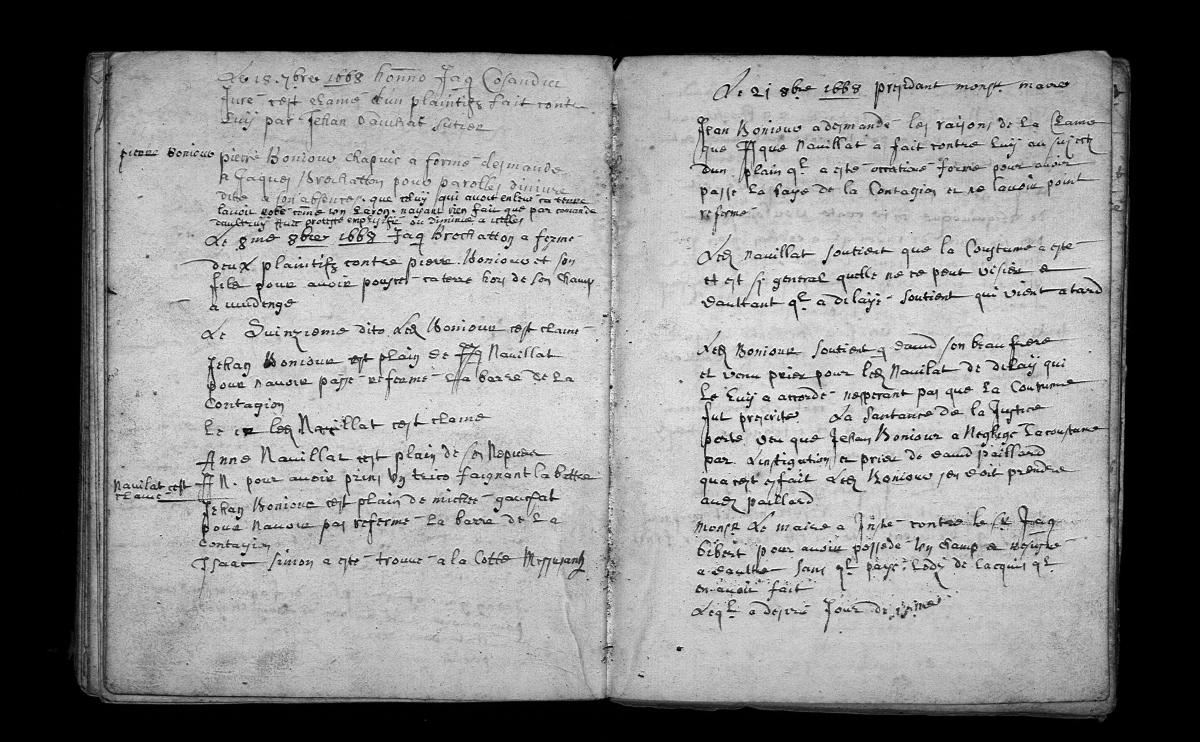 Le 18 7bre 1668 honno Jaq Cosandier
Juré cest clamé d'un plaintifz fait contre
Luy par Jehan Dautrat
pierre Boniour
pierre Boniour chapuis a formé desmande
a Jaques Brochatton pour parolles diniure
dite a son absence, que celuy qui avoit enleve ca terre
lavoir comme un Laron, nayant rien fait que par comande
daultruy
Le 8me 8bre 1668 Jaq Brochatton a formé
deux plaintifz contre pierre Boniour et son
filz pour avoir pousser ca terre hors de son champ
a
Le Quinzieme dito Ledt Boniour cest clamé
Jehan Boniour est plain de Jaq Navillat
pour navoir passe refermé La barre de La
Contagion
Le ledt Navillat cest clame
Anne Navillat cest plain de son Nepveu
J N. pour avoir prins un trico faignant la battre
Navilat cest
clamé
Jehan Boniour cest plain de
pour navoir pas refermé La barre de La
Contagion
Isaac Simon a esté trouvé a la Cotte
Le 21 8bre 1668 presidant monsr. maire
Jean Boniour a desmandé les raisons de La Clame
que Jaque Navillat a fait contre Luy au suject
dun plain ql a este occasione formé pour avoir
passe La baye de la Contagion et ne lavoir point
refermé
Ledt Navillat soutient que la Coustume a esté
et est sy general quelle ne ce peut
daultant ql a dilayé soutient qui vient a tard
Ledt Boniour soutient q david son beau frere
et venu prier pour ledt Navilat de dilay qui
Le Luy a accordé nesperant pas que La Coutume
fut prescrite La Santance de la Justice
porte veu que Jehan Boniour a Neglige La coustume
par Linstigation et prier de david paillard
qua cest esfait Ledt Boniour sen doit prendre
audt paillard
Monsr Le maire a Insté contre le sr Jaq
bibert pour avoir possedé un champ
a daultre sans ql paye Lodz de lacquis ql
en avoir fait
Leql a Jour de